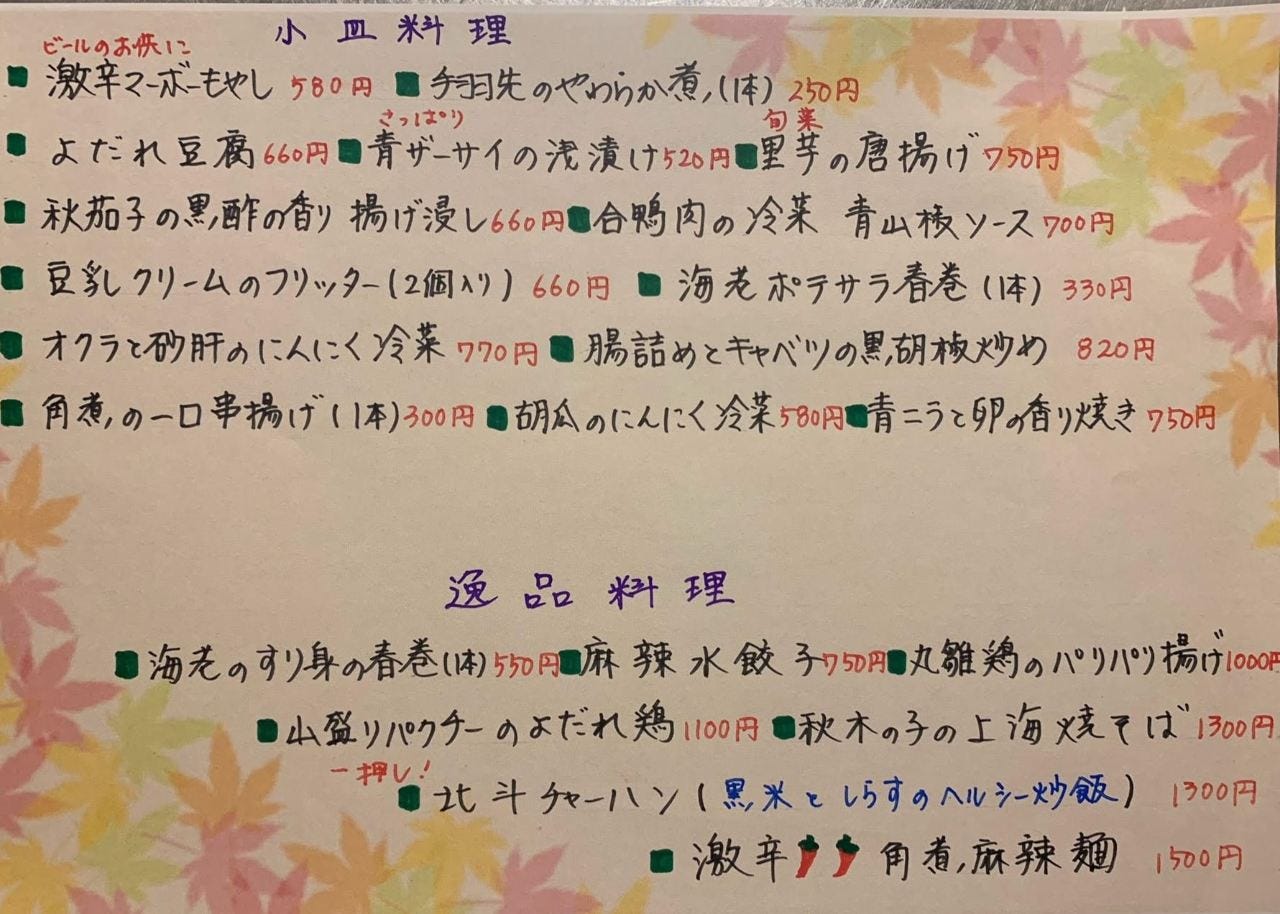 小皿料理
ビールのお供に
■激辛マーボーもやし 580円 ■手羽先のやわらか煮(1本) 250円
さっぱり 旬菜
■よだれ豆腐660円■青ザーサイの浅漬け520円■里芋の唐揚げ750円
■秋茄子の黒酢の香り 揚げ浸し660円■合鴨肉の冷菜 青山椒ソース700円
■豆乳クリームのフリッター(2個入り) 660円 ■海老ポテサラ春巻(1本) 330円
■オクラと砂肝のにんにく冷菜 770円 ■腸詰めとキャベツの黒胡椒炒め 820円
■角煮の一口串揚げ(1本)300円 ■胡瓜のにんにく冷菜580円■青ニラと卵の香り焼き 750円
逸品料理
■海老のすり身の春巻(1本)550円■麻辣水餃子750円■丸雛鶏のパリパリ揚げ1000円
■山盛りパクチーのよだれ鶏1100円 ■秋木の子の上海焼そば 1300円
一押し!
■北斗チャーハン(黒米としらすのヘルシー炒飯) 1300円
■激辛 角煮麻辣麺 1500円